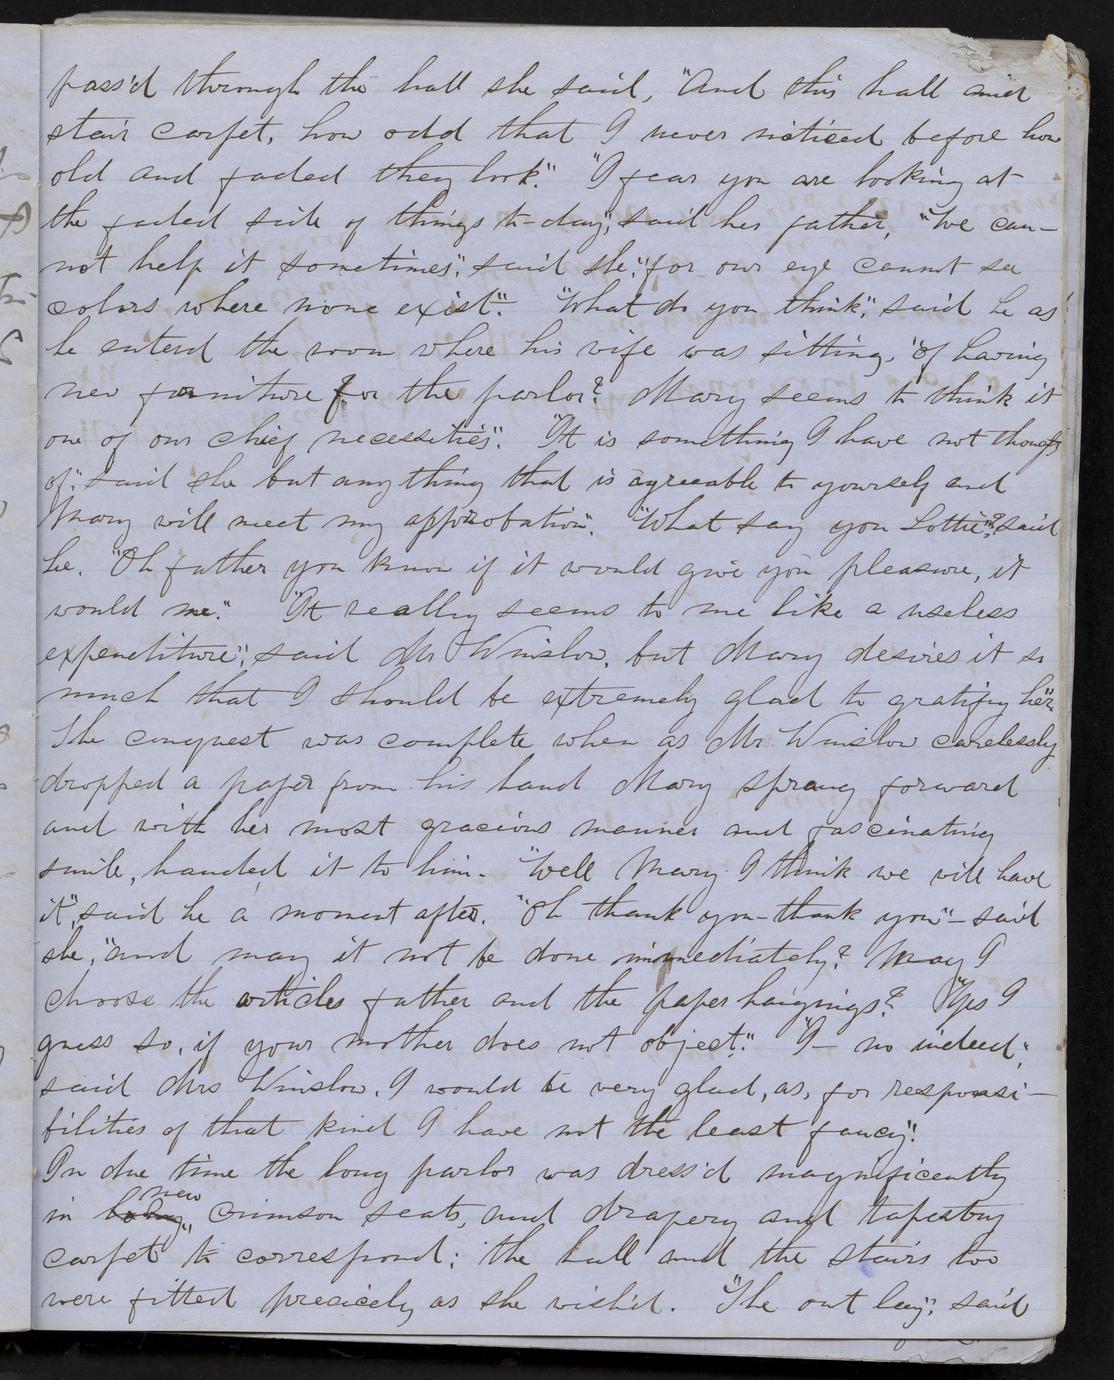 pass'd through the hall she said, "And this hall and
stair carpet, how odd that I never noticed before how
old and faded they look". "I fear you are looking at
the faded side of things to-day", said her father, "We can-
not help it sometimes", said she, "for our eye cannot see
colors where none exist". "What do you think", said he as
he enterd the room where his wife was sitting, "of having
new furniture for the parlor? Mary seems to think it
one of our chief necessities". "It is something I have not though
of", said she but any thing that is agreeable to yourself and
Mary will meet my approbation". "What say you Lottie"? said
he. "Oh father you know if it would give you pleasure, it
would me". "It really seems to me like a useless
expenditure", said Mr Winslow, but Mary desires it so
much that I should be extremely glad to gratify her".
The conquest was complete when as Mr Winslow carelessly
dropped a paper from his hand Mary sprang forward
and with her most gracious manner and fascinating
smile, handed it to him. "Well Mary I think we will have
it", said he a moment after. "Oh thank you - thank you" - said
she, "and may it not be done immediately? May I
choose the articles father and the paper haignings? "Yes I
guess so, if your mother does not object". "I - no indeed",
said Mrs Winslow. I would be very glad, as, for responsi-
bilities of that kind I have not the least fancy".
In due time the long parlor was dress'd magnificently
in new crimson seats, and drapery and tapestry
carpet to correspond; the hall and the stairs too
were fitted precicely as she wish'd. "The out lay", said